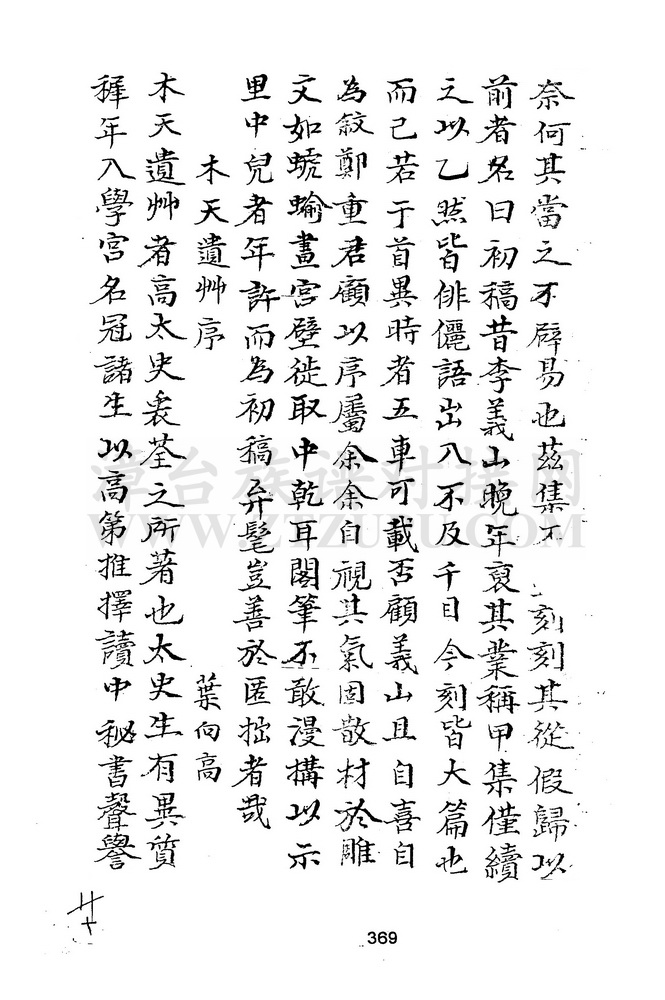 奈何其當之不辟易也茲集不刻刻其從假歸以
前者名曰初稿昔李義山晚年裒其業稱甲集僅續
之以乙然皆俳儷語出入不及千日今刻皆大篇也
而已若干首異時者五車可載否顧義山且自喜自
為敘鄭重君顧以序屬余余自視其氣固散材於雕
文如蜣蝓畫宮壁徙取中乾耳閣筆不敢漫搆以示
里中兒者年許而為初稿弁髦豈善於匿拙者哉
木天遺艸序 葉向高
木天遺艸者高太史㐮荃之所著也太史生有異質
穉年入學宮名冠諸生以高第推擇讀中秘書聲譽
廿七
369
漳台族谱对接网
WWW.ZTZUPU.COM